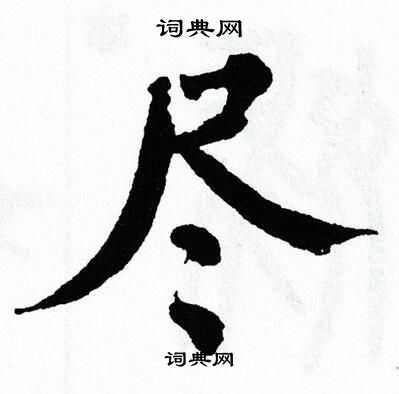 词典网
尽
词典网